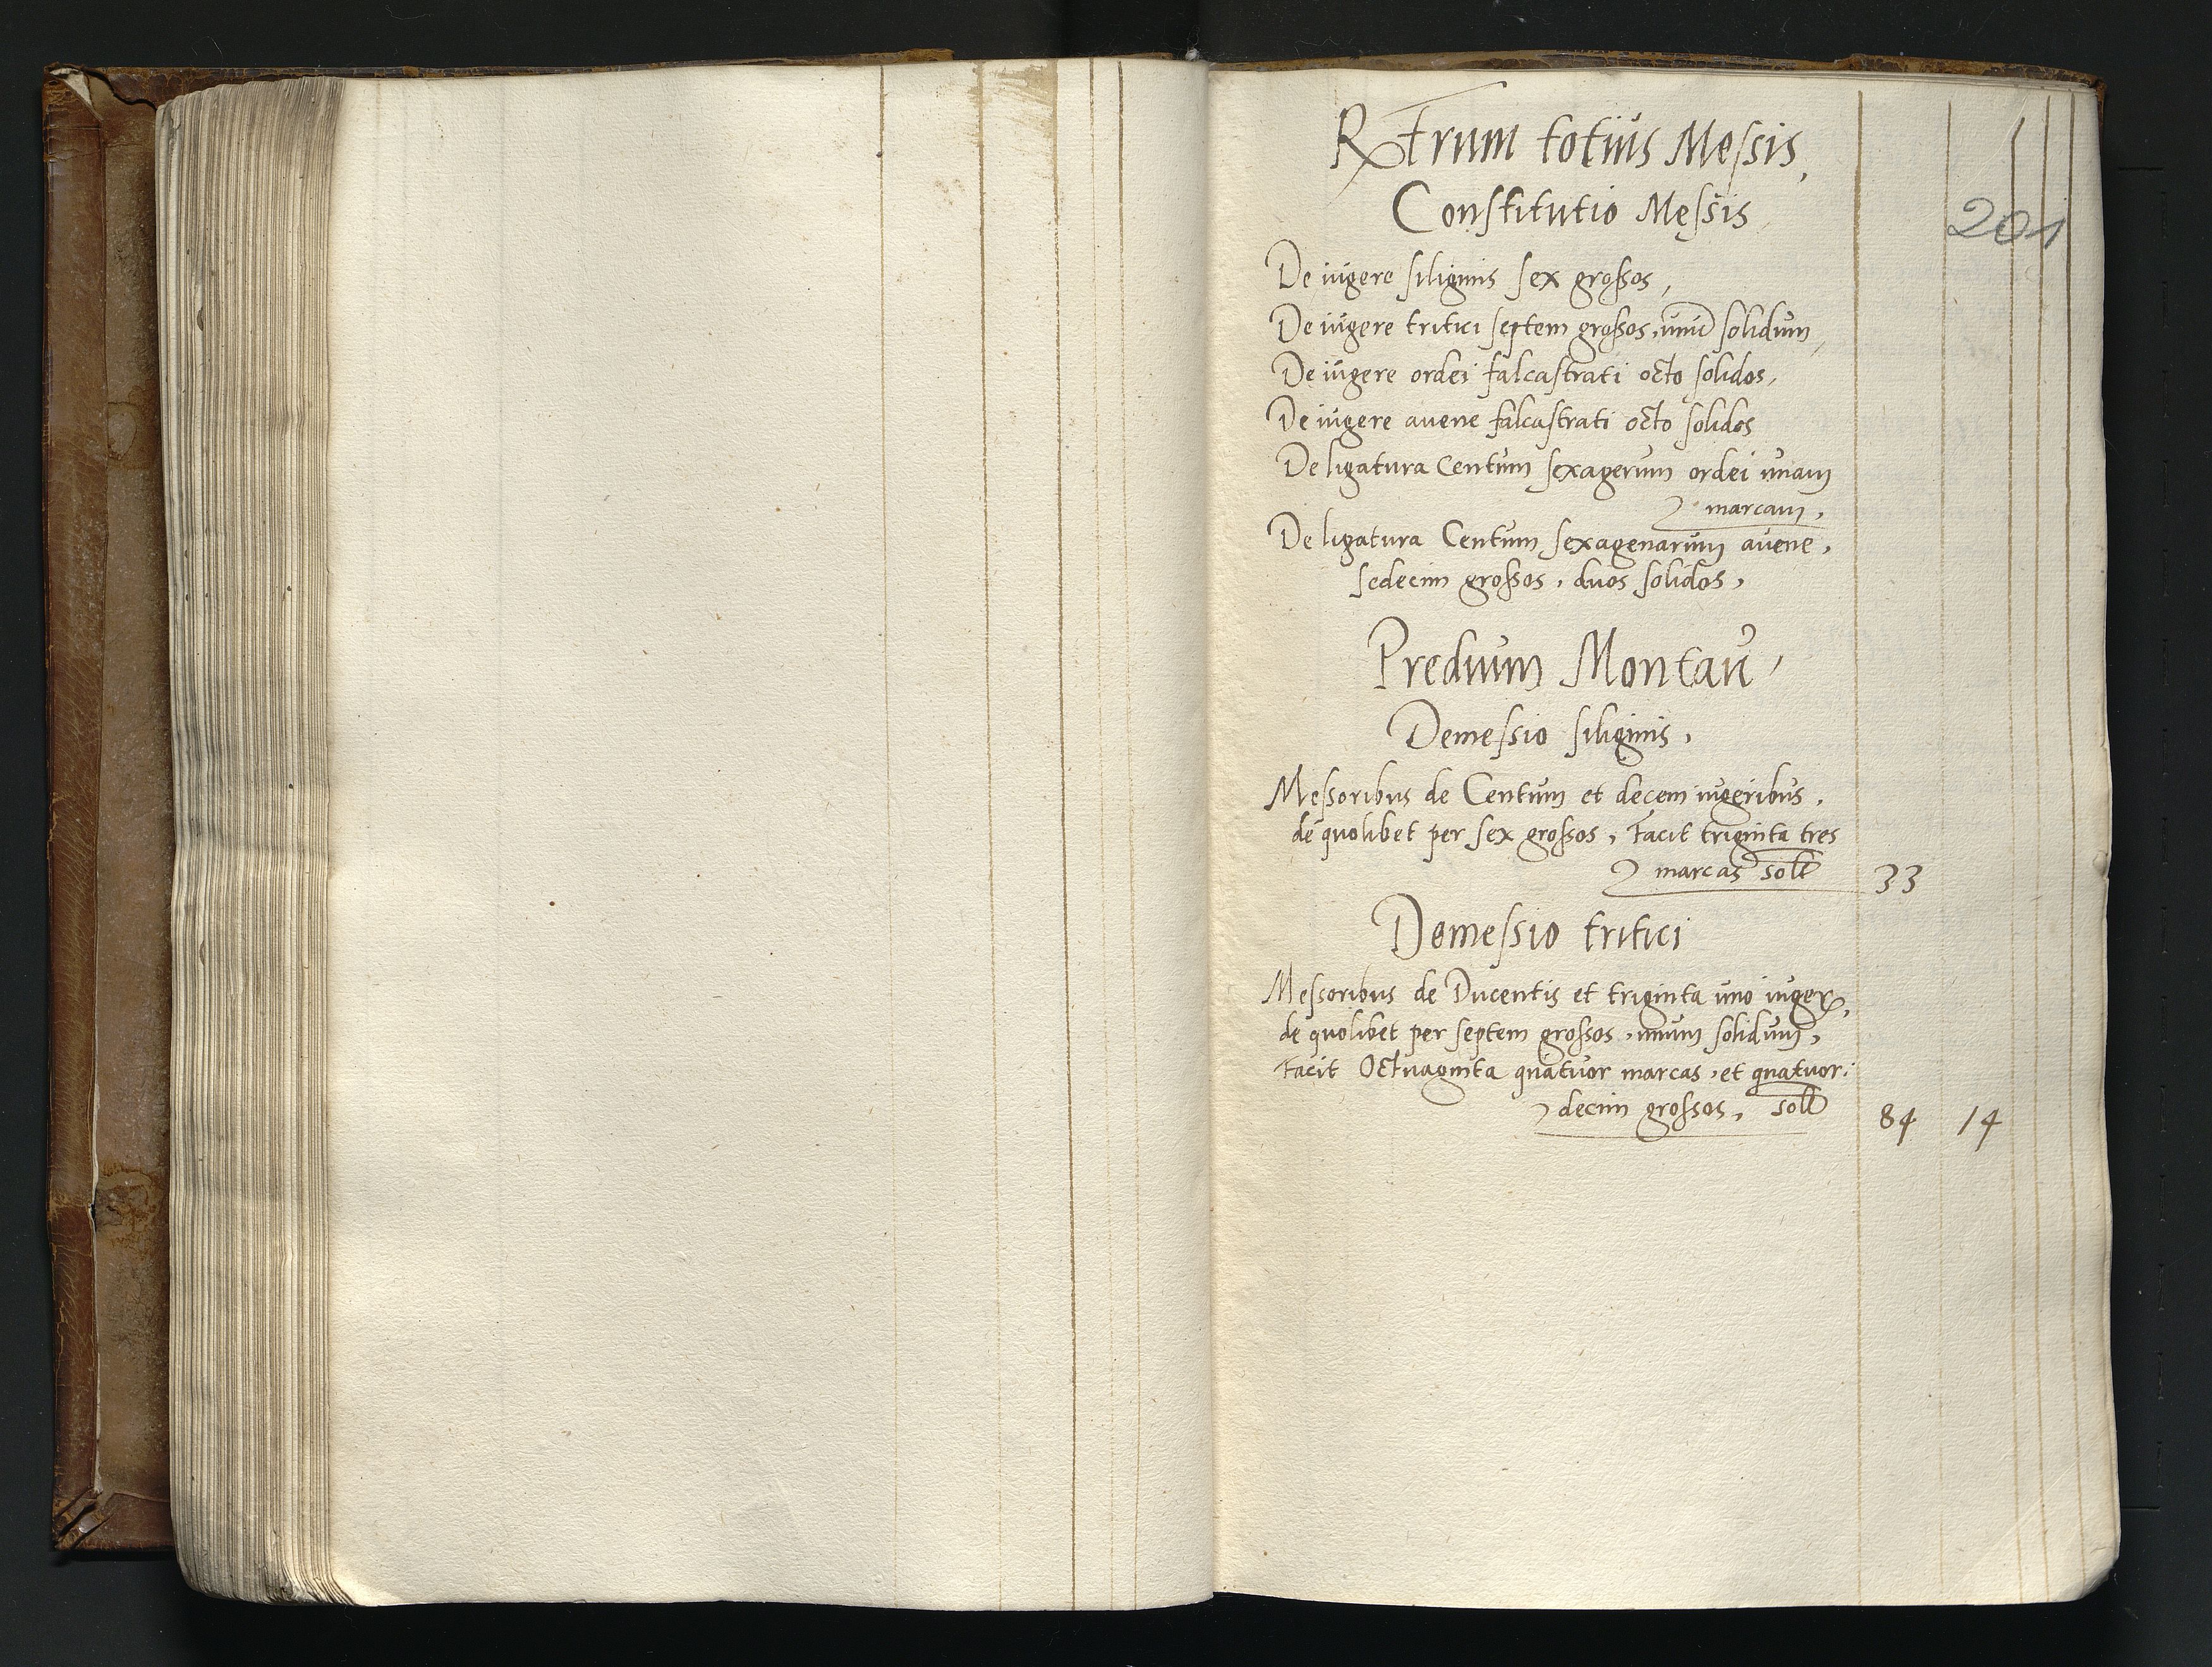 Rtrum totius Messis,
Constitutio Messis
201
De iugere siliginis sex grossos,
De iugere tritici septem grossos, unū solidum,
De iugere ordei falcastrati octo solidos,
De iugere auene falcastrati octo solidos
De ligatura Centum sexagerum ordei unam
marcam,
De ligatura Centum sexagenarum auene,
sedecim grossos, duos solidos,
Predium Montau,
Demessio siliginis,
Messoribus de Centum et decem iugeribus,
de quolibet per sex grossos, Facit triginta tres
marcas solt 33
Demessio tritici
Messoribus de Ducentis et triginta uno iuger,
de quolibet per septem grossos, unum solidum,
Facit Octuaginta quatuor marcas, et quatuor:
decim grossos, solt 84 14